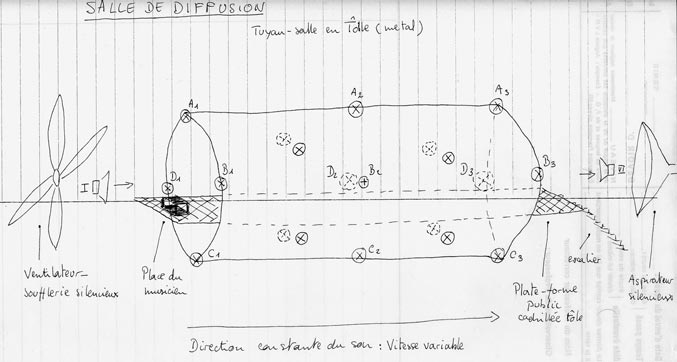 SALLE DE DIFFUSION
Tuyau-salle en Tôle (metal)
A1
A2
A3
I
D1
B1
D2
B2
D3
B3
VI
C1
C2
C3
Ventilateur-
soufflerie silencieux
Place du
musicien
Plate-forme
public
cadrillée tôle
escalier
Aspirateur
silencieux
Direction constante du son : Vitesse variable